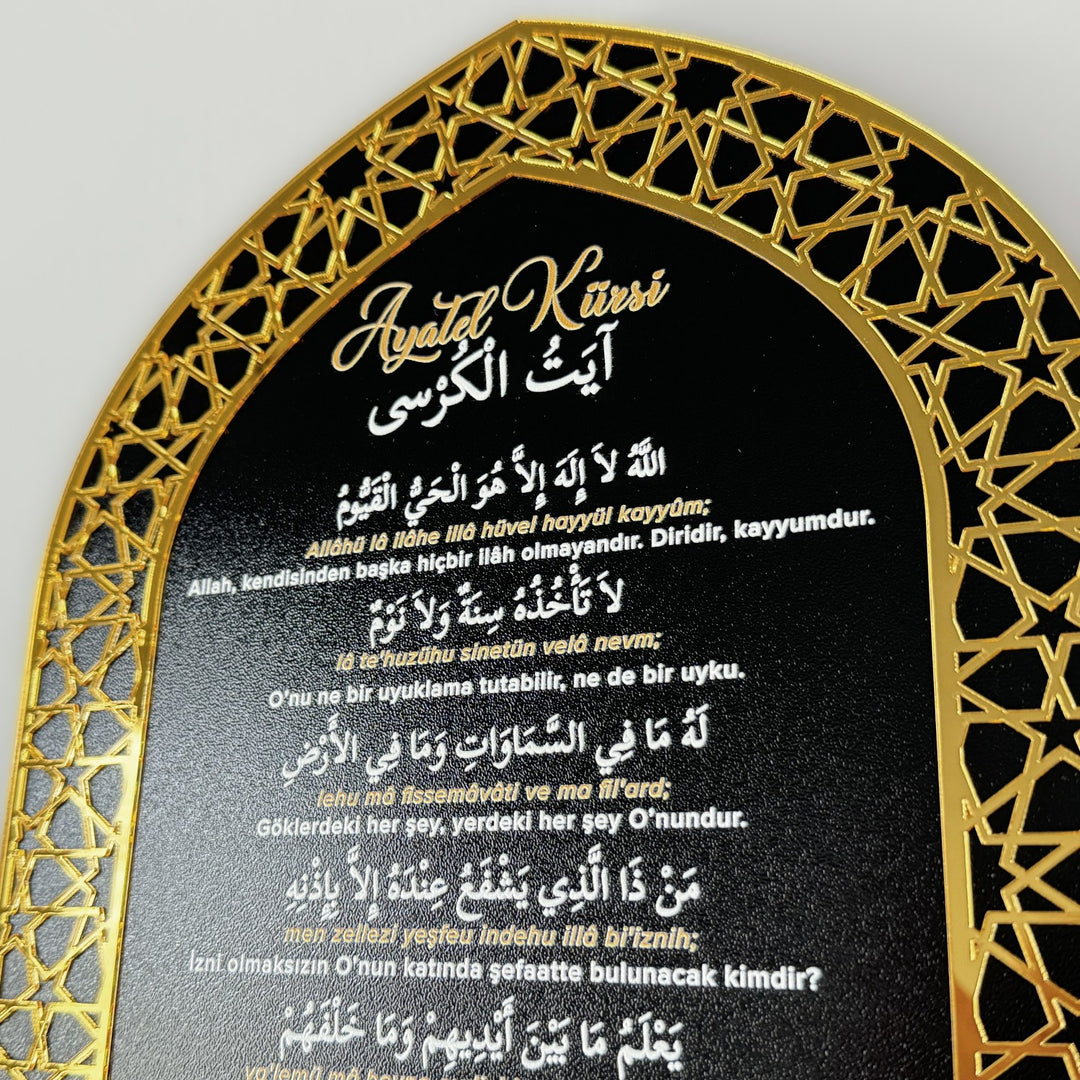 Ayatel Kürsi
آيَتُ الْكُرْسى
اللَّهُ لاَ إِلَهَ إِلاَّ هُوَ الْحَيُّ الْقَيُّومُ
Allâhü lâ ilâhe illâ hüvel hayyül kayyûm;
Allah, kendisinden başka hiçbir ilâh olmayandır. Diridir, kayyumdur.
لاَ تَأْخُذُهُ سِنَةٌ وَلاَ نَوْمٌ
lâ te'huzühu sinetün velâ nevm;
O'nu ne bir uyuklama tutabilir, ne de bir uyku.
لَهُ مَا فِي السَّمَاوَاتِ وَمَا فِي الأَرْضِ
lehu mâ fissemâvâti ve ma fil'ard;
Göklerdeki her şey, yerdeki her şey O'nundur.
مَنْ ذَا الَّذِي يَشْفَعُ عِنْدَهُ إِلاَّ بِإِذْنِهِ
men zellezi yeşfeu indehu illâ bi'iznih;
İzni olmaksızın O'nun katında şefaatte bulunacak kimdir?
يَعْلَمُ مَا بَيْنَ أَيْدِيهِمْ وَمَا خَلْفَهُمْ
ya'lemü mâ